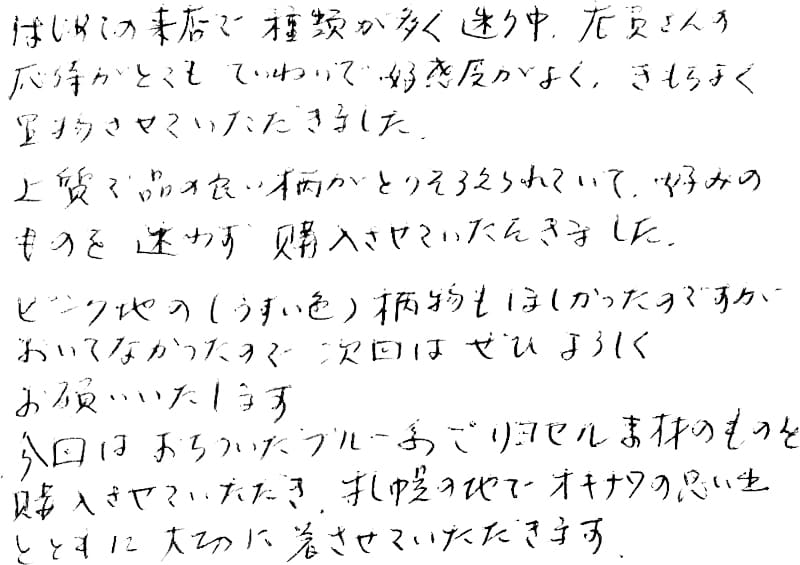 はじめての来店で種類が多く迷う中、店員さんの
応待がとてもていねいで好感度がよく、きもちよく
買物させていただきました。
上質で品の良い柄がとりそろえられていて、好みの
ものを迷わず購入させていただきました。
ピンク地の(うすい色)柄物もほしかったのですが
おいてなかったので次回はぜひよろしく
お願いいたします
今回はおちついたブルー系でリヨセル素材のものを
購入させていただき、札幌の地でオキナワの思い出
とともに大切に着させていただきます。